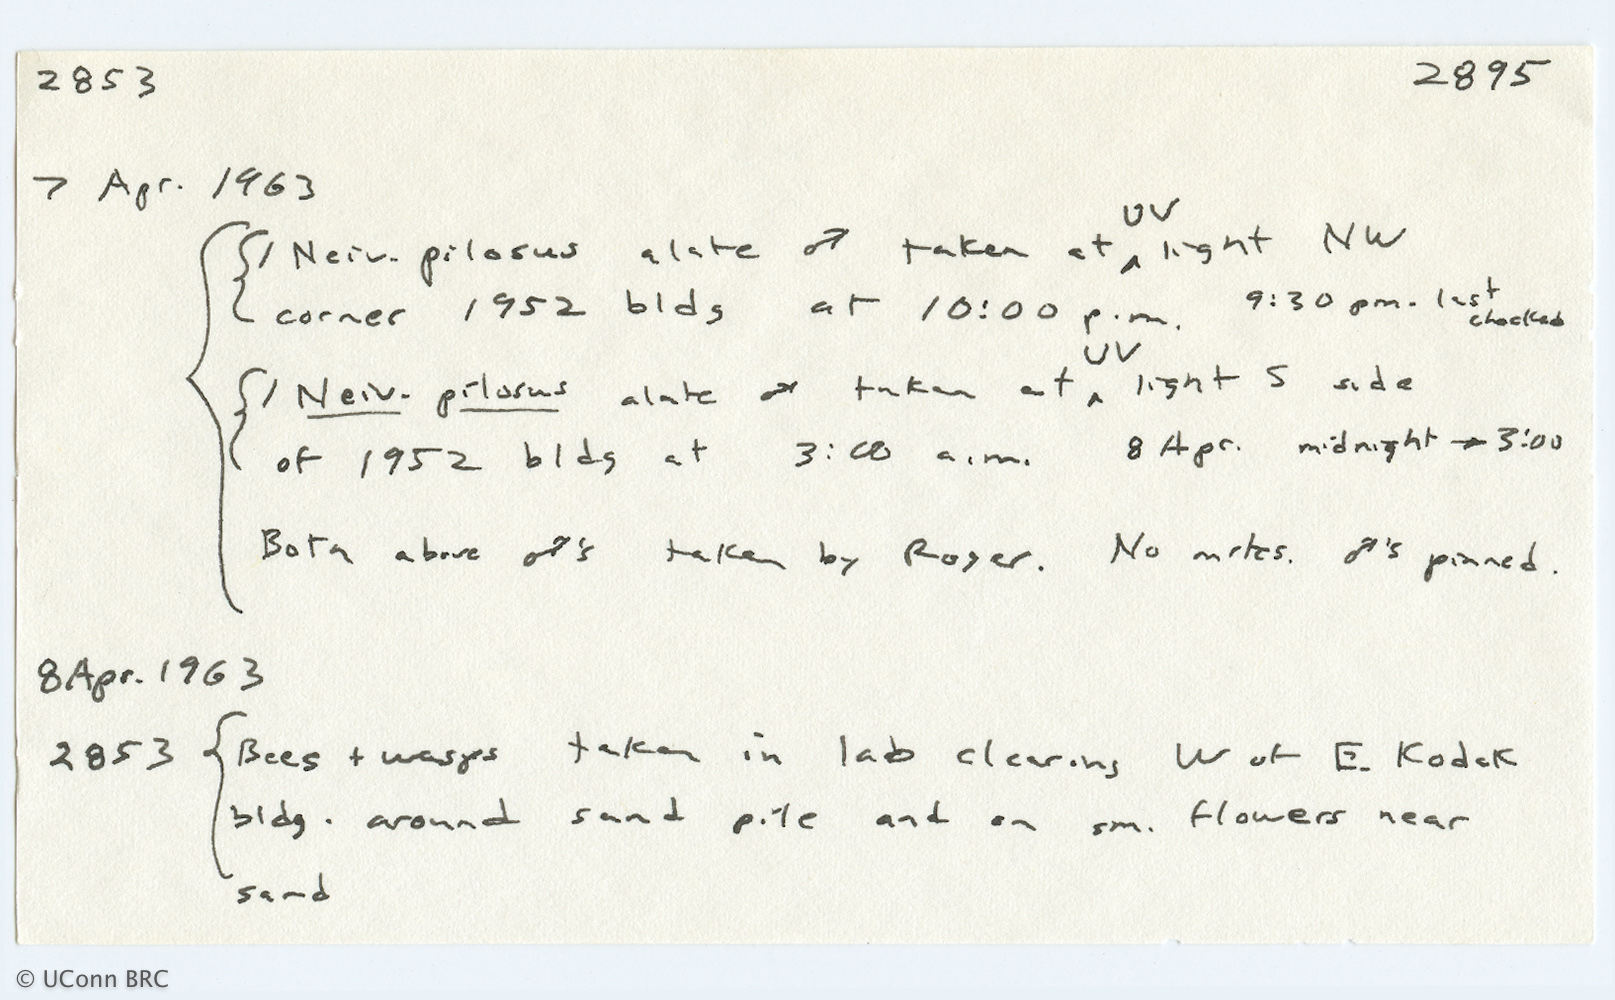 2853 2895
7 Apr. 1963
1 Neiv. pilosus alate ♂ taken at ^UV light NW
corner 1952 bldg at 10:00 p.m. 9:30 pm. last checked
1 Neiv. pilosus alate ♂ taken at ^UV light S side
of 1952 bldg at 3:00 a.m. 8 Apr. midnight → 3:00
Both above ♂'s taken by Roger. No mites. ♂'s pinned.
8 Apr. 1963
2853 Bees + wasps taken in lab clearing W of E. Kodak
bldg. around sand pile and on sm. flowers near
sand
© UConn BRC